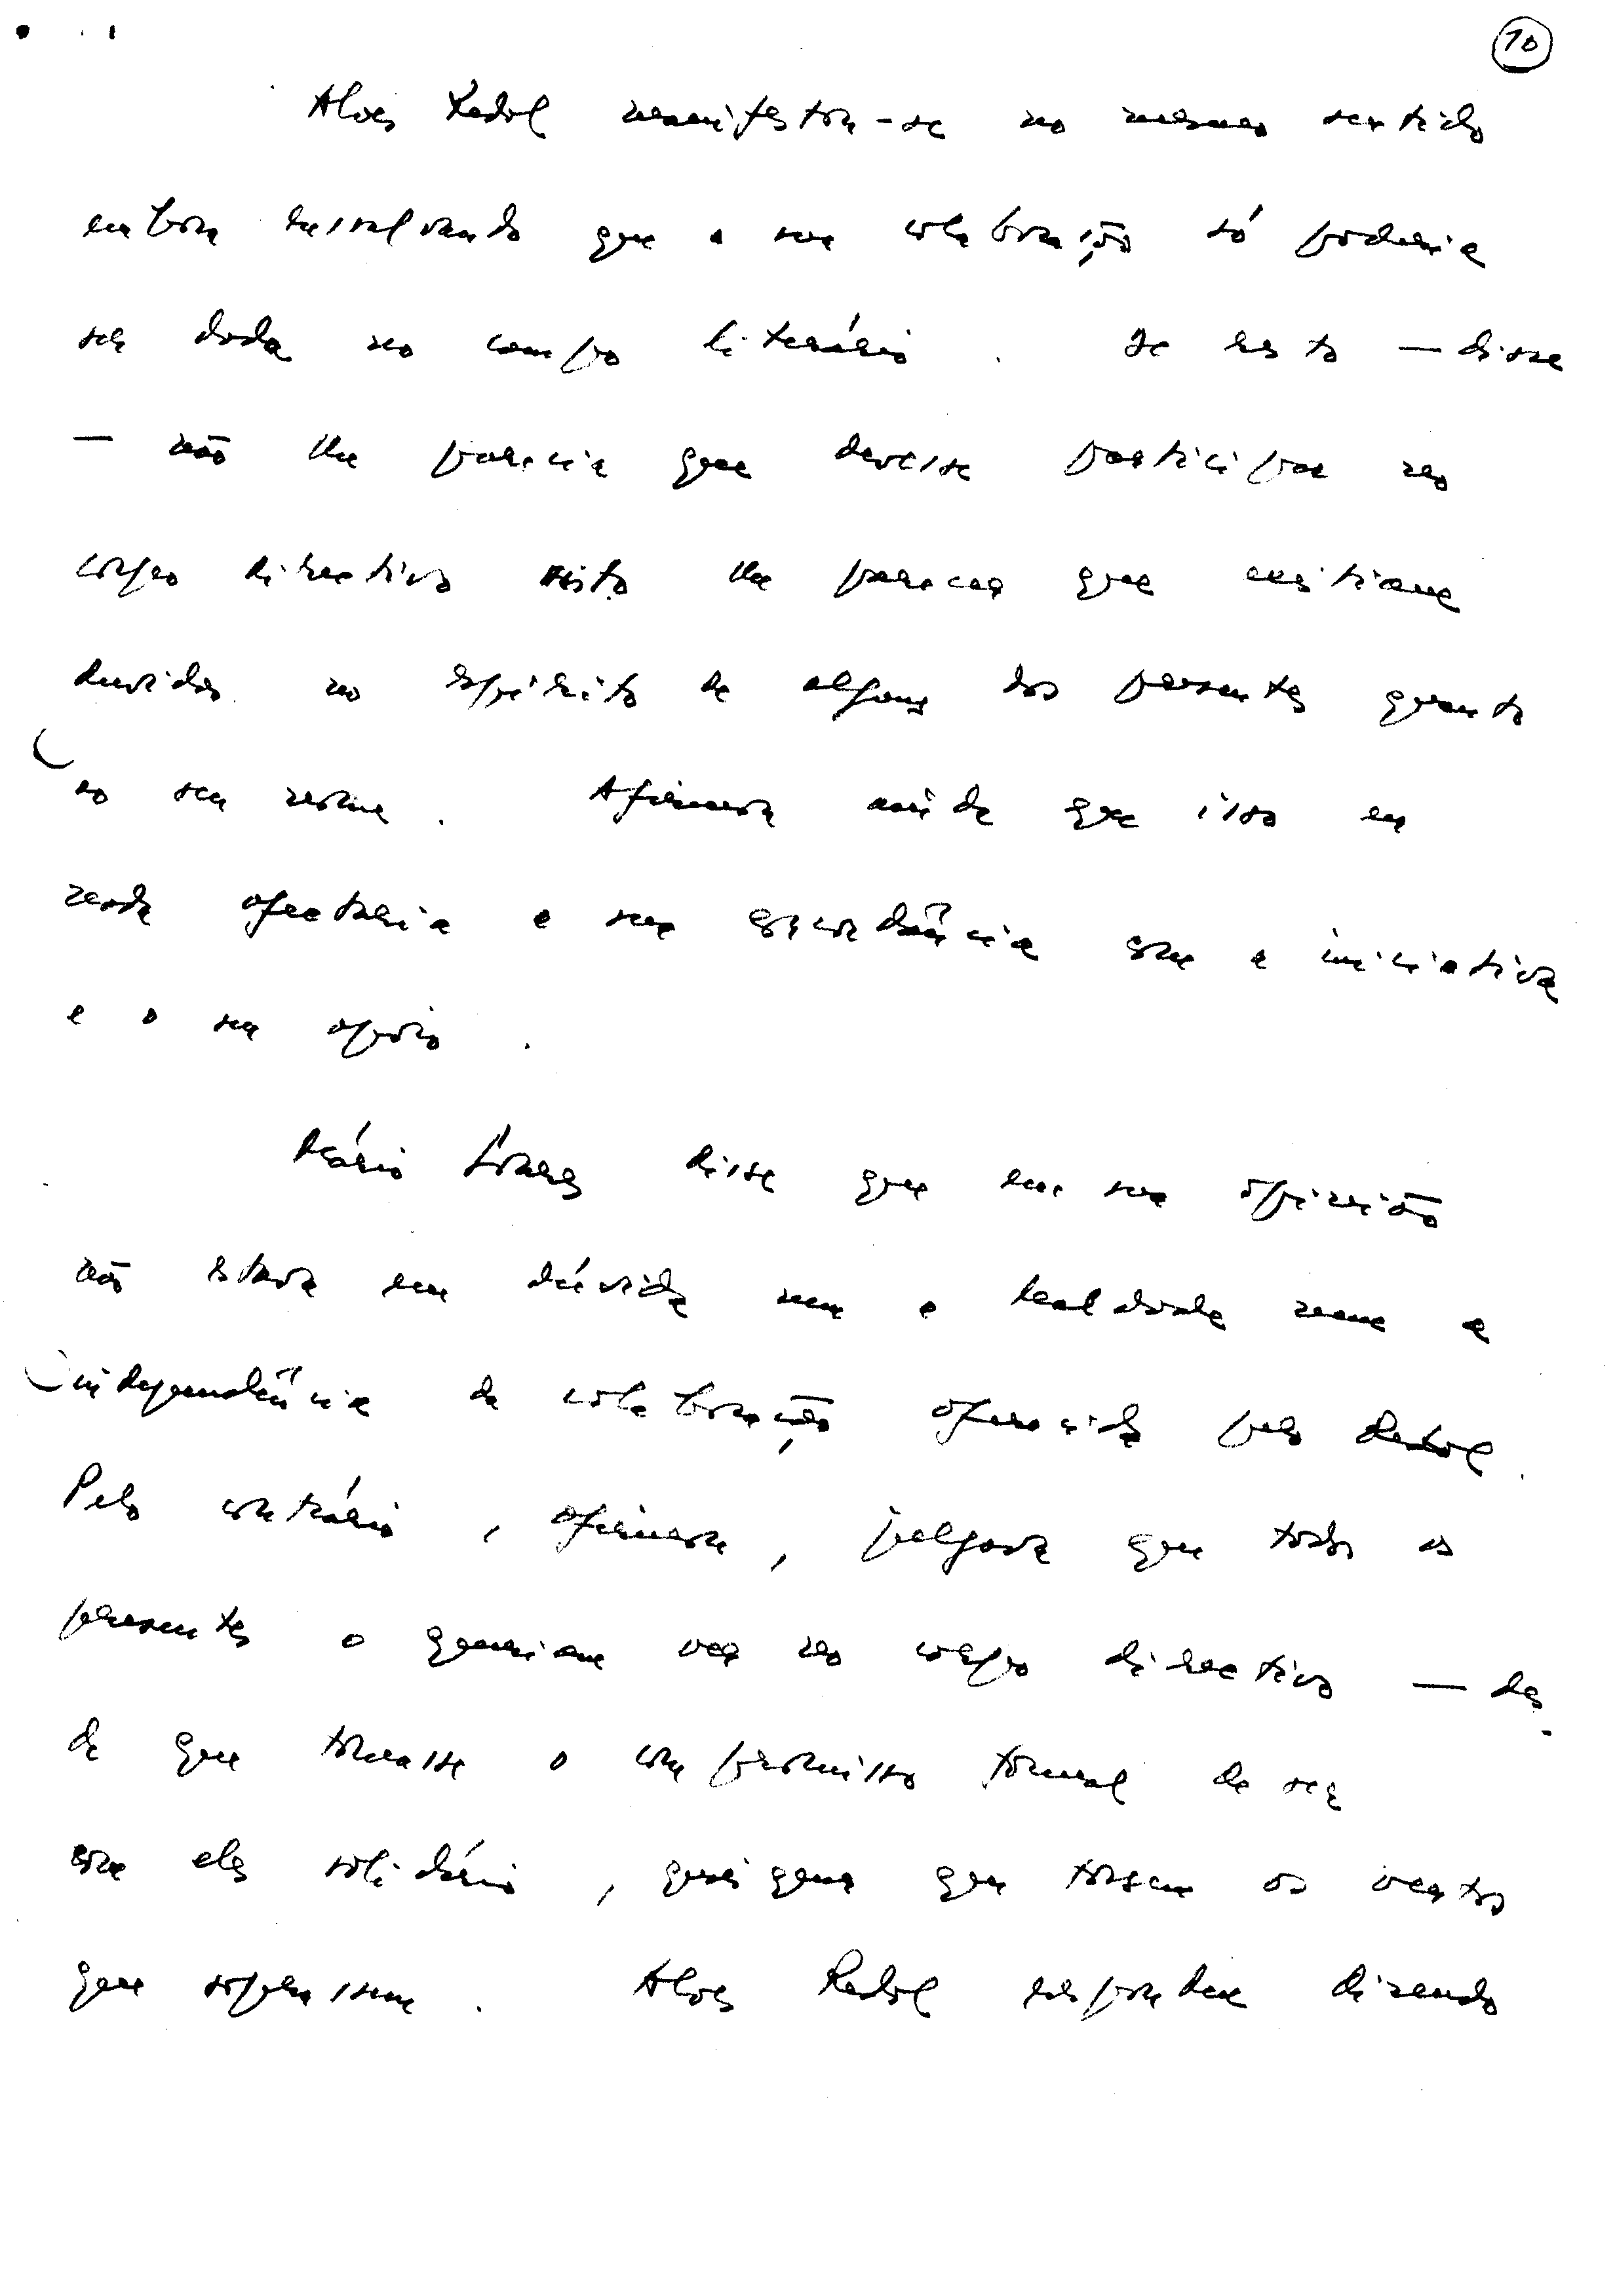 10
Alves Redol manifestou-se no mesmo sentido
embora ressalvando que a sua colaboração só poderia
ser dada no campo literário. De resto — disse
— não lhe parecia que devesse participar no
corpo directivo visto lhe parecer que existiam
duvidas no espírito de alguns dos presentes quanto
ao seu nome. Afirmou ainda que isso em
nada afectaria a sua concordância com a iniciativa
e o seu apoio.
Mário Soares disse que em sua opinião
não estava em dúvida nem a lealdade nem a
independência da colaboração oferecida pelo Redol.
Pelo contrário, afirmou, julgava que todos os
presentes o queriam ver no corpo directivo — des-
de que tomasse o compromisso formal de ser
com eles solidário, quaisquer que fossem os ventos
que soprassem. Alves Redol respondeu dizendo